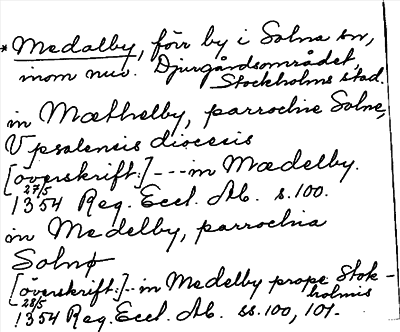 *Medalby, förr by i Solna sn,
inom nuv. Djurgårdsområdet,
Stockholms stad.
in Mæthelby, parrochie Solne,
Vpsalensis diocesis
[överskrift:]---in Mædelby.
27/5
1354 Reg. Eccl. Ab. s. 100.
in Medelby, parrochia
Solnø
[överskrift:]--in Medelby prope Stok-
holmis
28/5
1354 Reg. Eccl. Ab. ss. 100, 101.